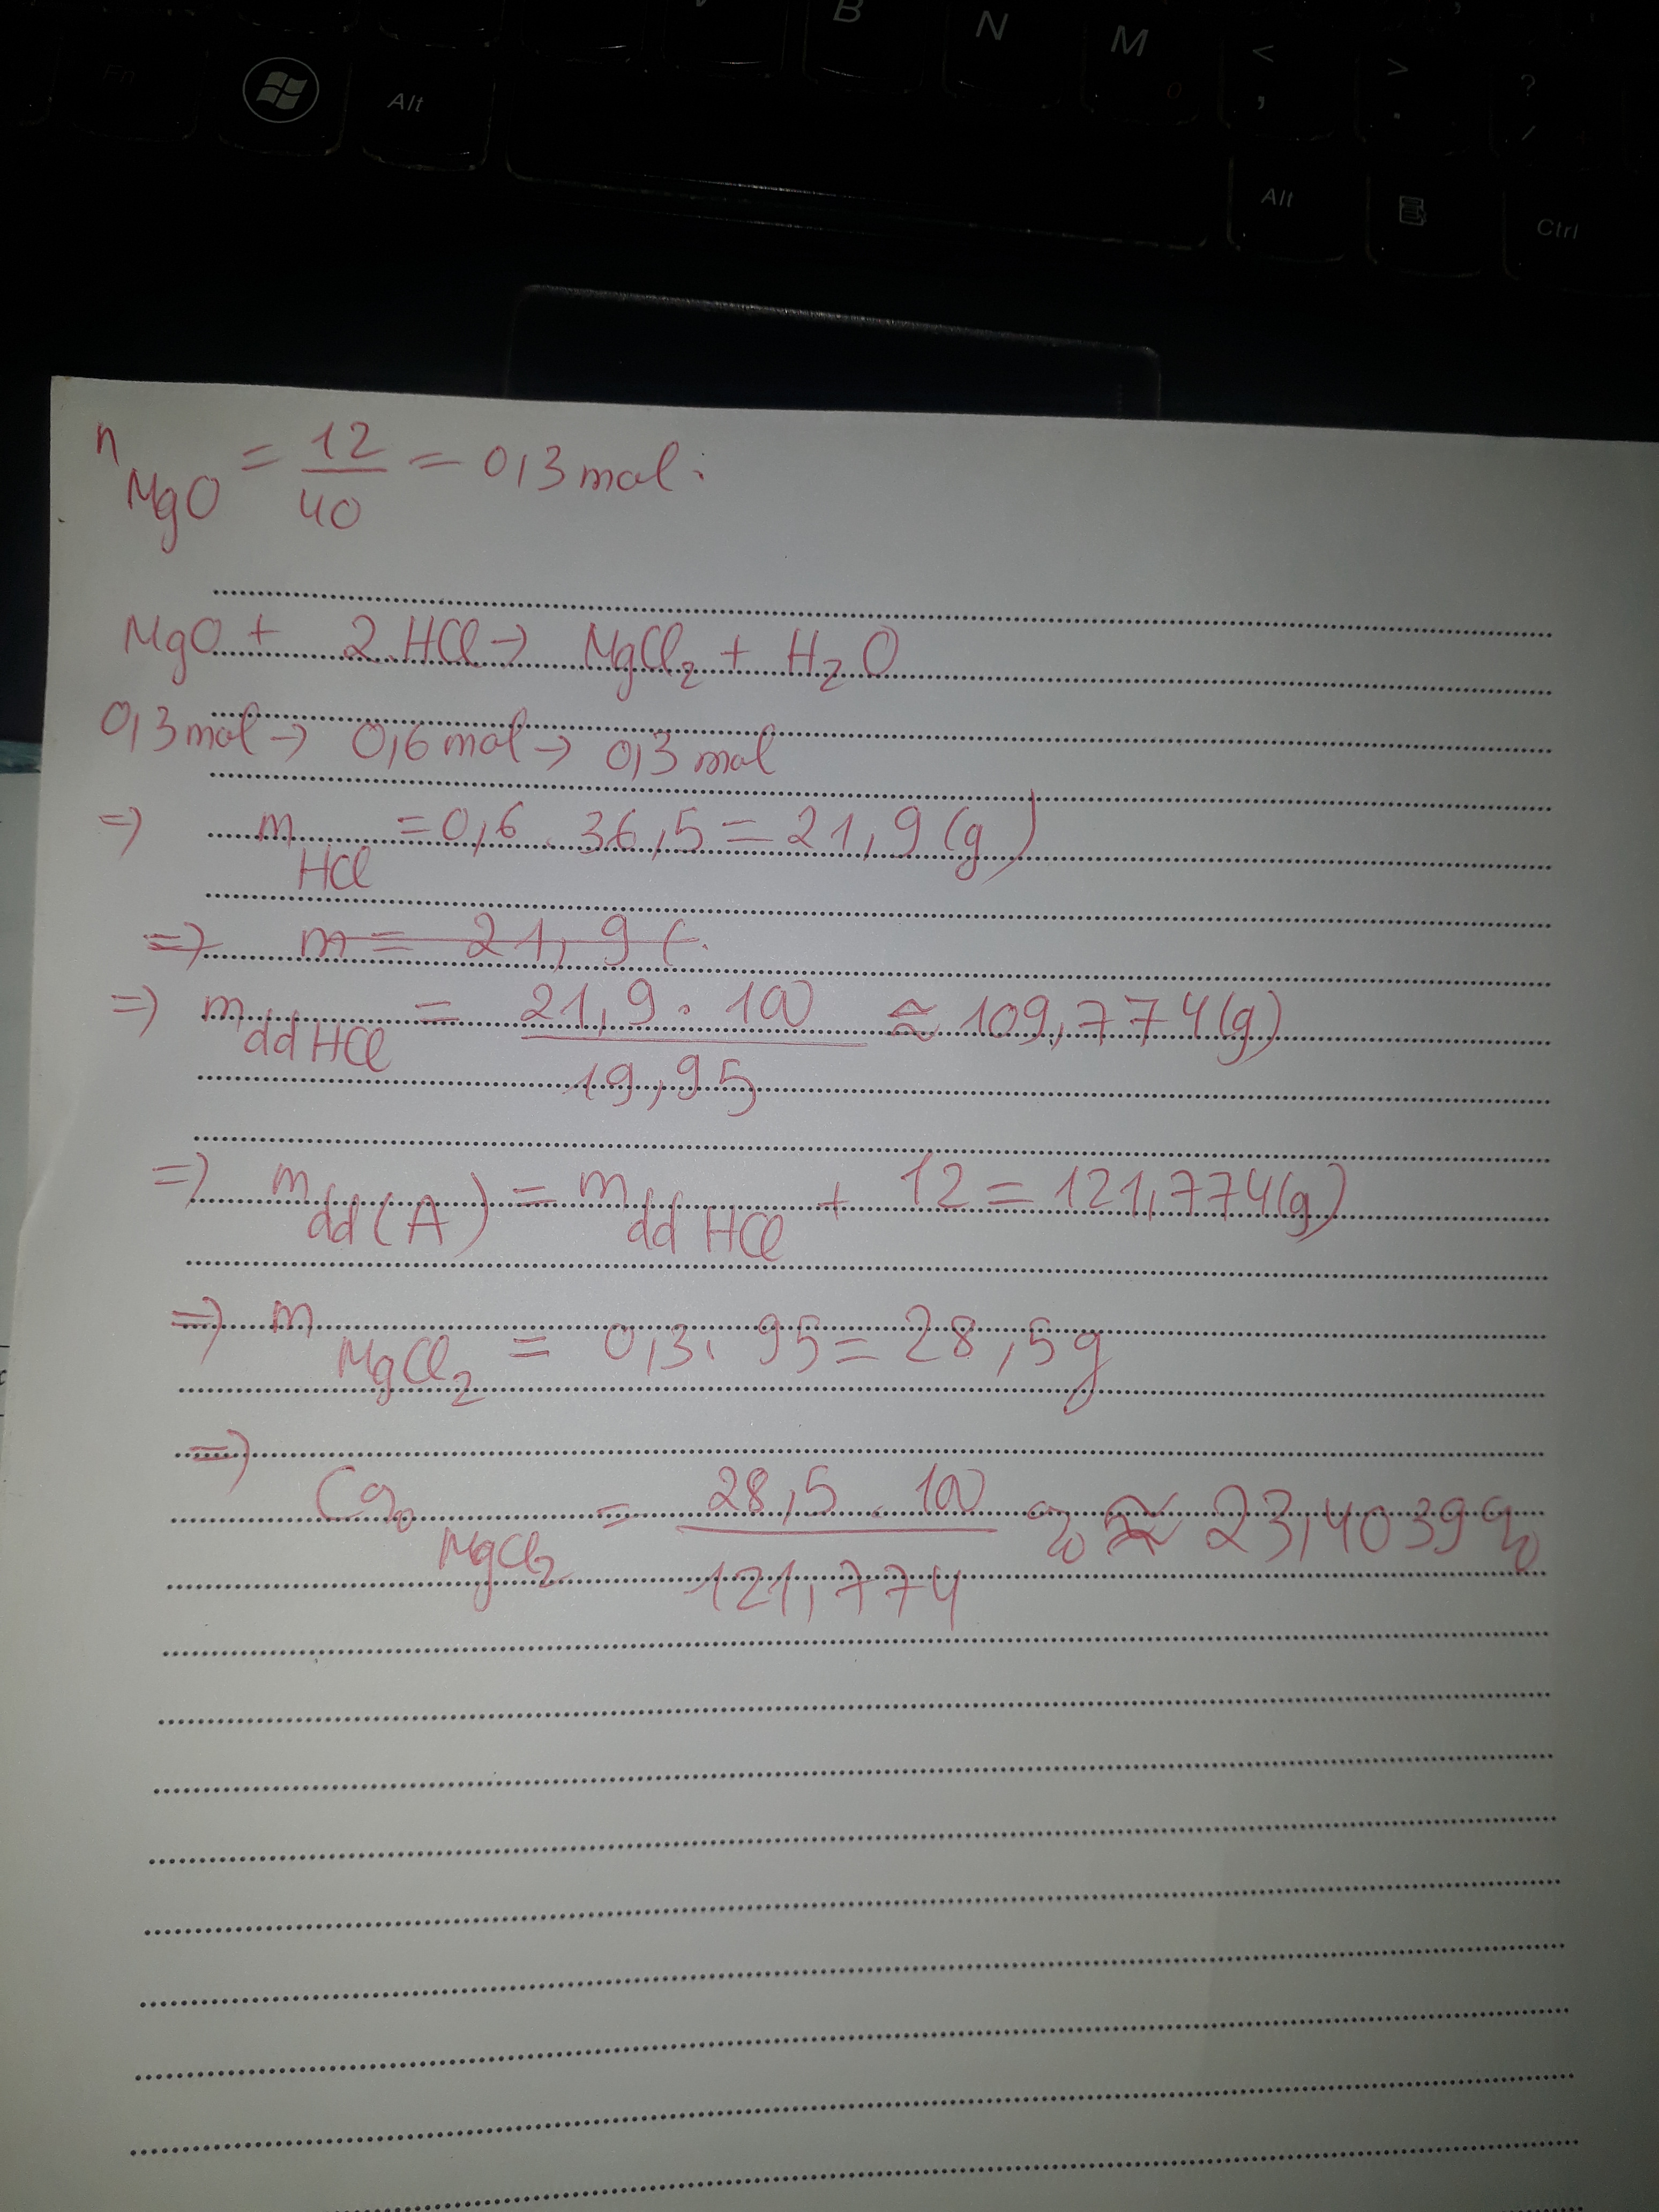 B N M < ,
> . ? /
Fn Alt Alt Ctrl
n MgO = 12/40 = 0,3 mol.
MgO + 2 HCl → MgCl2 + H2O
0,3 mol → 0,6 mol → 0,3 mol
=> m HCl = 0,6 . 36,5 = 21,9 (g)
=> m = 21,9 (.
=> m dd HCl = 21,9 . 100 / 19,95 ≈ 109,774 (g)
=> m dd (A) = m dd HCl + 12 = 121,774 (g)
=> m MgCl2 = 0,3 . 95 = 28,5 g
=>
C% MgCl2 = 28,5 . 100 / 121,774 % ≈ 23,4039 %